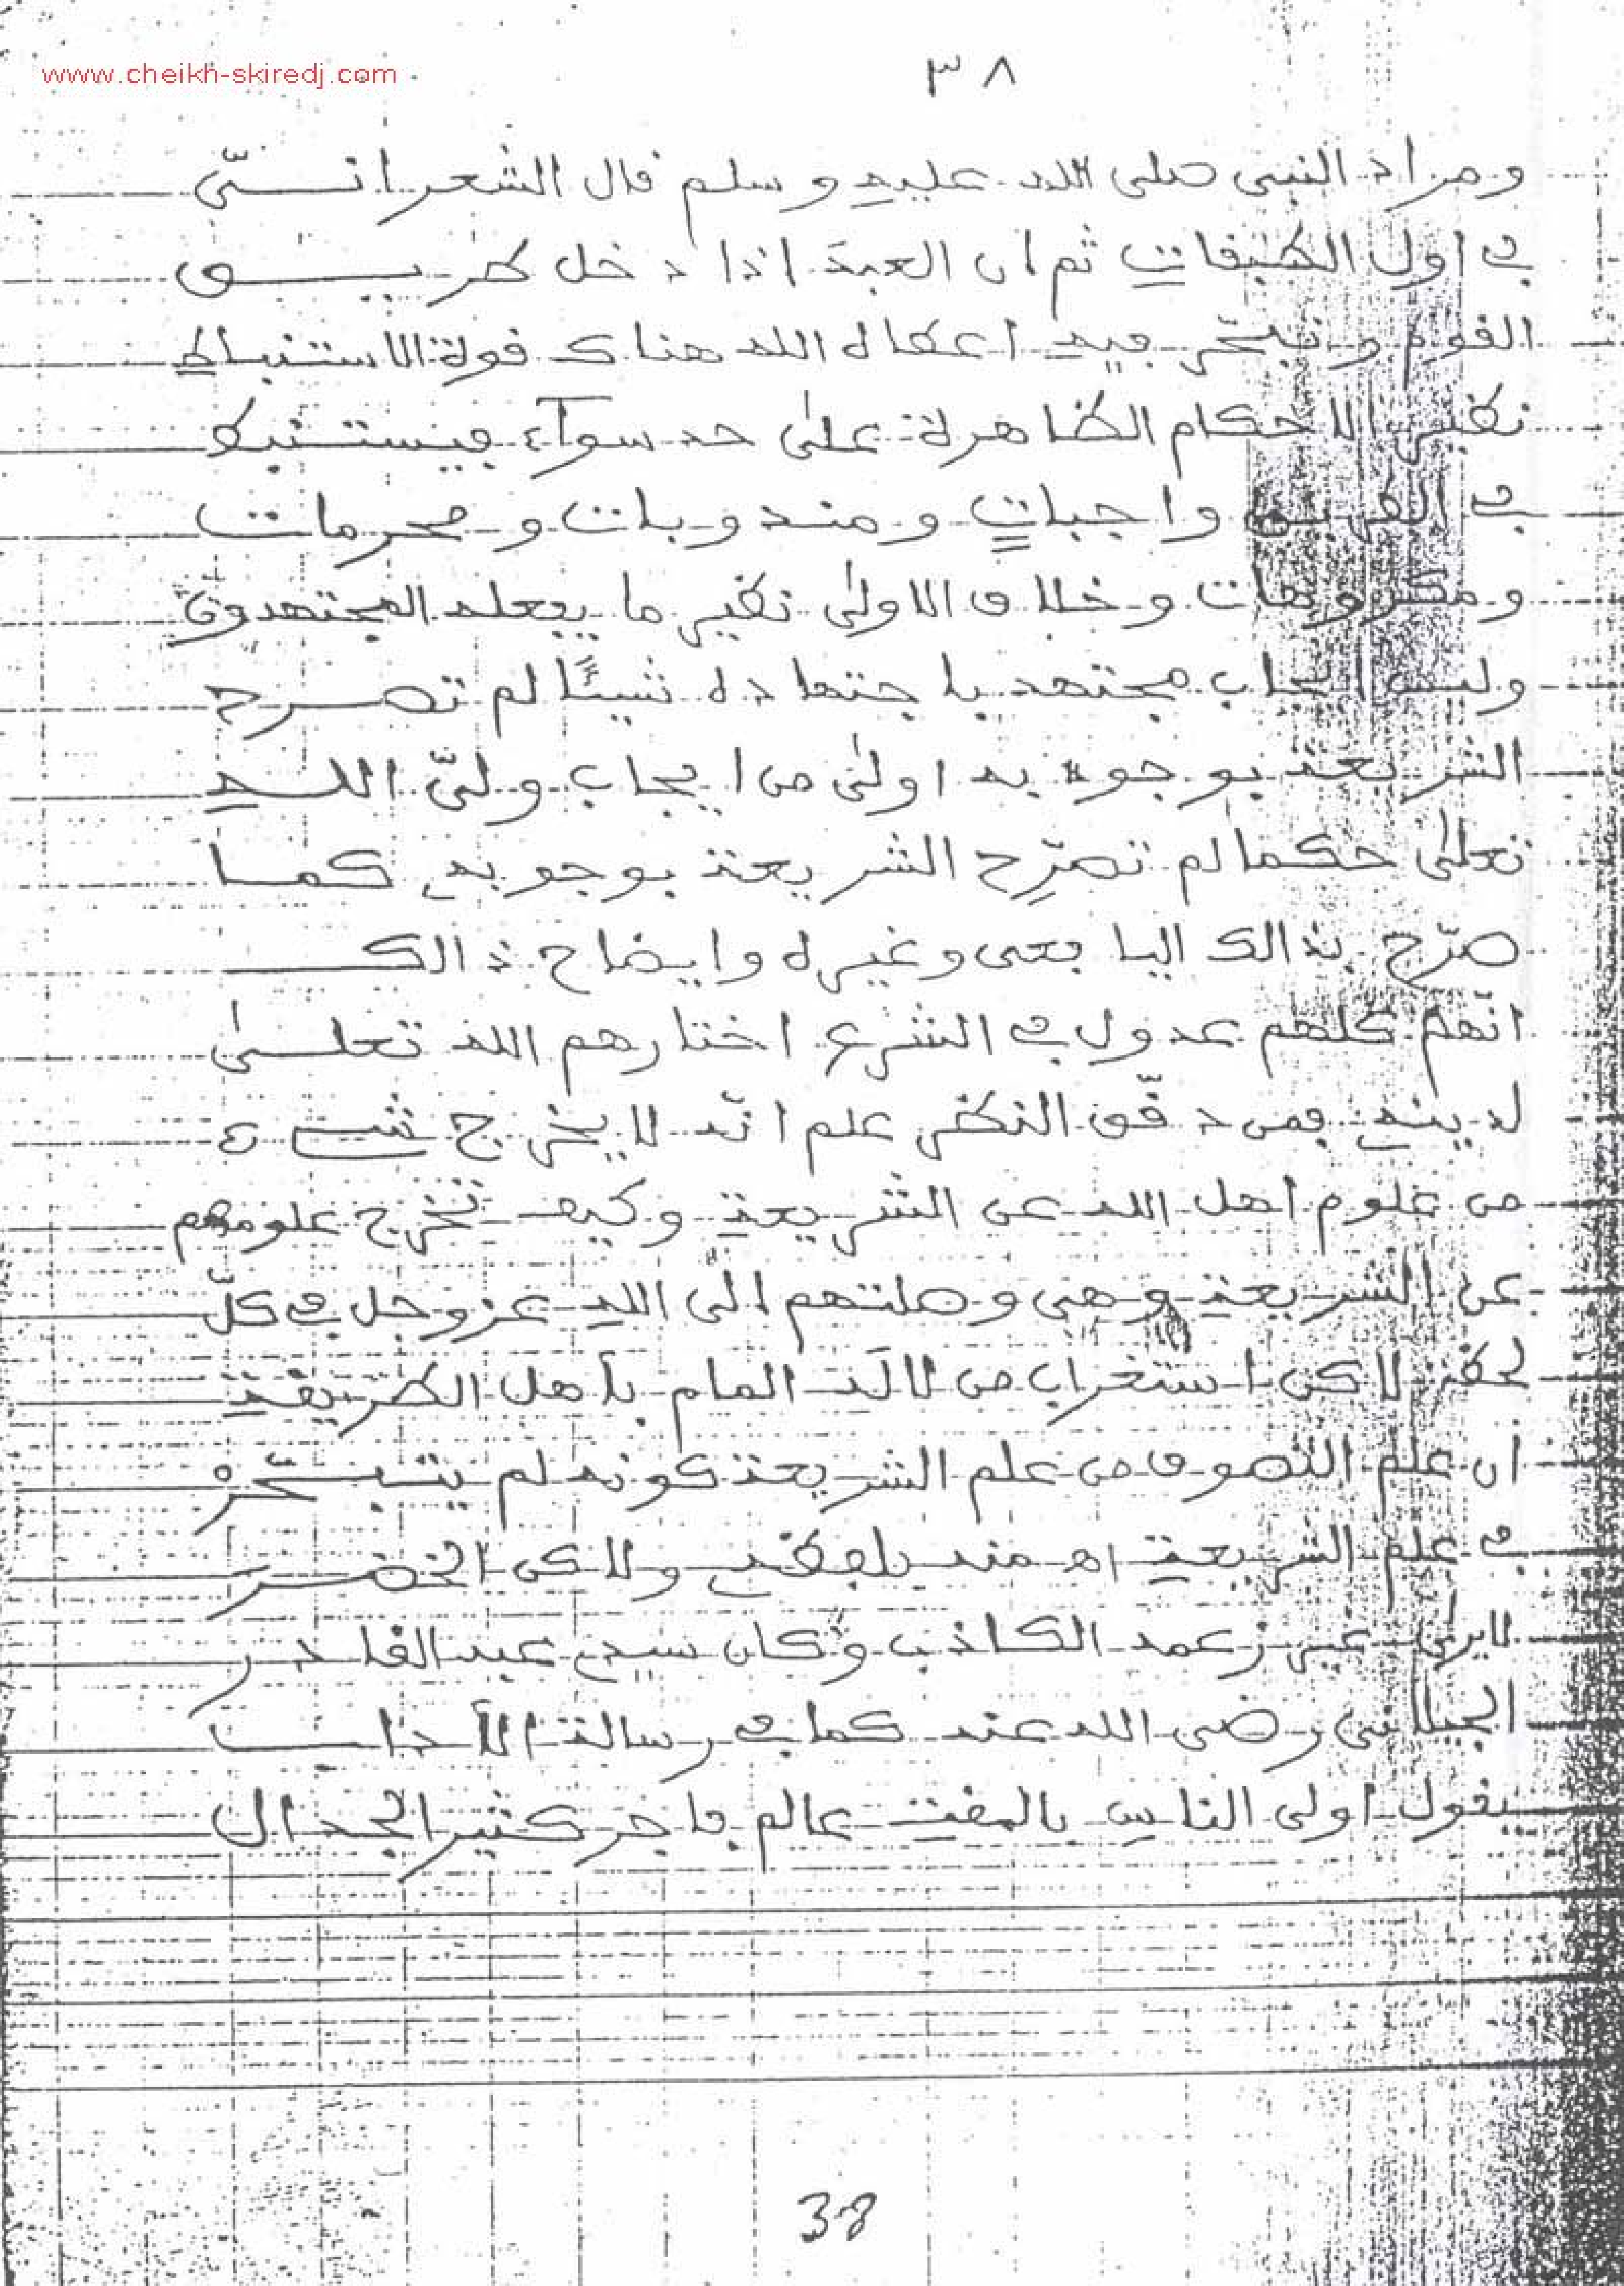 www.cheikh-skiredj.com
٣٨
ومراد النبي صلى الله عليه وسلم قال الشعرانيّ
في اول الطبقات ثم ان العبد اذا دخل طريق
القوم وتبحّر فيه اعطاه الله هناك قوة الاستنباط
نظير الاحكام الظاهرة على حد سوآء فيستنبط
في الطريق واجباتٍ ومندوبات ومحرمات
ومكروهات وخلاف الاولى نظير ما يفعله المجتهدون
وليس ايجاب مجتهد باجتهاده شيئًا لم تصرح
الشريعة بوجوبه اولى من ايجاب وليّ الله
تعلى حكما لم تصرّح الشريعة بوجوبه كما
صرّح بذالك اليافعى وغيره وايضاح ذالك
انّهم كلهم عدول في الشرع اختارهم الله تعلى
لدينه فمن دقّق النظر علم انّه لا يخرج شىء
من علوم اهل الله عن الشريعة وكيف تخرج علومهم
عن الشريعة وهى وصلتهم الى الله عز وجل في كلّ
لحظة لاكن استغراب من لا له المام بأهل الطريقة
ان علم التصوف من علم الشريعة كونه لم يتبحّر
في علم الشريعة اه منه بلفظه ولاكن الخضر
لا يرى غير زعمه الكاذب وكان سيدي عبد القادر
الجيلانى رضى الله عنه كما في رسالة الآداب
يقول اولى الناس بالمقت عالم فاجر كثير الجدال
38